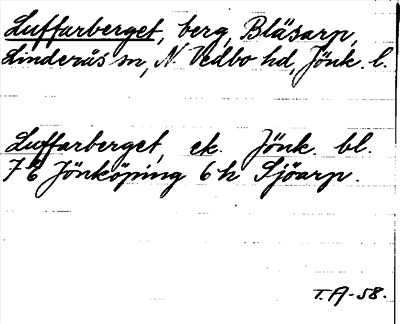 Luffarberget, berg, Bläsarp,
Linderås sn, N. Vedbo hd, Jönk. l.
Luffarberget, ek. Jönk. bl.
7E Jönköping 6h Sjöarp.
T.A-58.